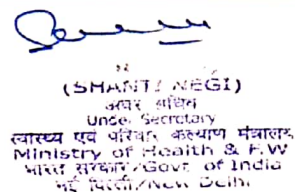 (SHANTI NEGI)
अवर सचिव
Under Secretary
स्वास्थ्य एवं परिवार कल्याण मंत्रालय
Ministry of Health & F.W
भारत सरकार/Govt. of India
नई दिल्ली/New Delhi